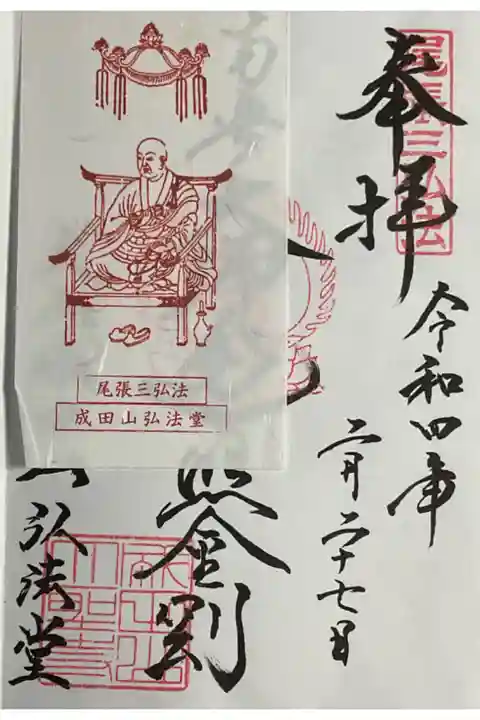 尾張三弘法
奉拝
令和四年
二月二十七日
金剛
弘法堂
尾張三弘法
成田山弘法堂